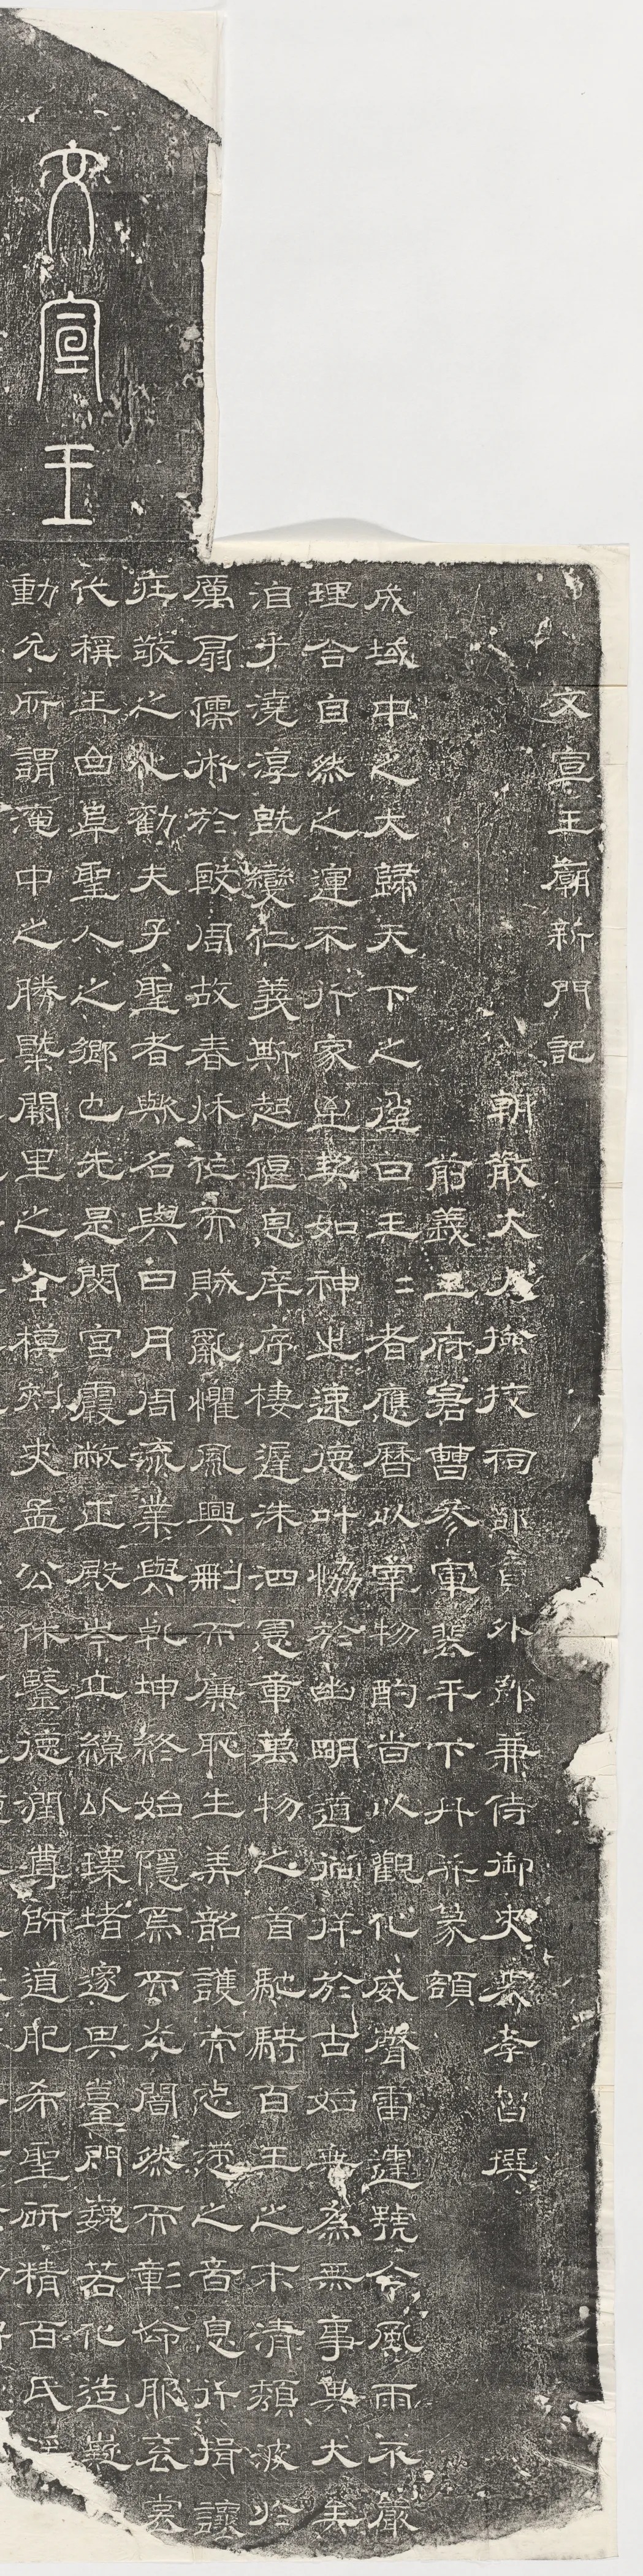 文宣王
文宣王廟新門記
朝散大夫撿挍祠部員外郎兼侍御史裴孝智撰
前義王府倉曹參軍裴平下丹并篆額
成域中之大歸天下之往曰王〻者應曆以宰物酌昔以觀化威聲雷運號令風雨不嚴
理合自然之運不行家至契如神之速德叶恊於幽明道洽祥於古始無為無事與大美
洎乎澆淳既變仁義斯起偃息庠序棲遲洙泗憲章萬物之首馳騁百王之末清頹波於
厲扇儒術於殷周故春秋作而賊亂懼風興刪而廉恥生弄韶護而之音息行揖讓
莊敬之化勸夫子聖者歟名與日月周流業與乾坤終始隱焉而光闇然而彰命服袞裳
代稱王曲阜聖人之鄉也先是閟宮霞敞正殿岑立繚以環堵邃臺門巍若化造嶷
動允所謂淹中之勝㮣闕里之全模刺史孟公休鑒德潤尊師道肥希聖研精百氏